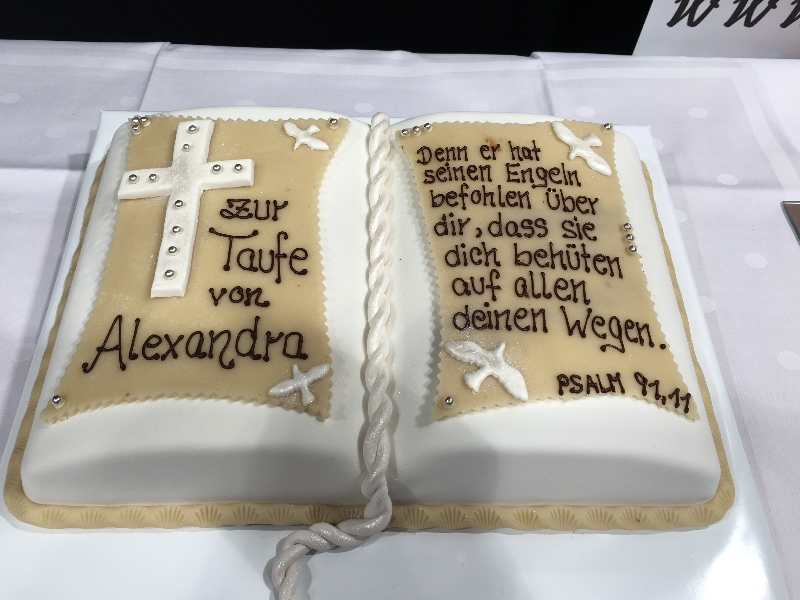 www
zur
Taufe
von
Alexandra
Denn er hat
seinen Engeln
befohlen Über
dir, dass sie
dich behüten
auf allen
deinen Wegen.
PSALM 91,11